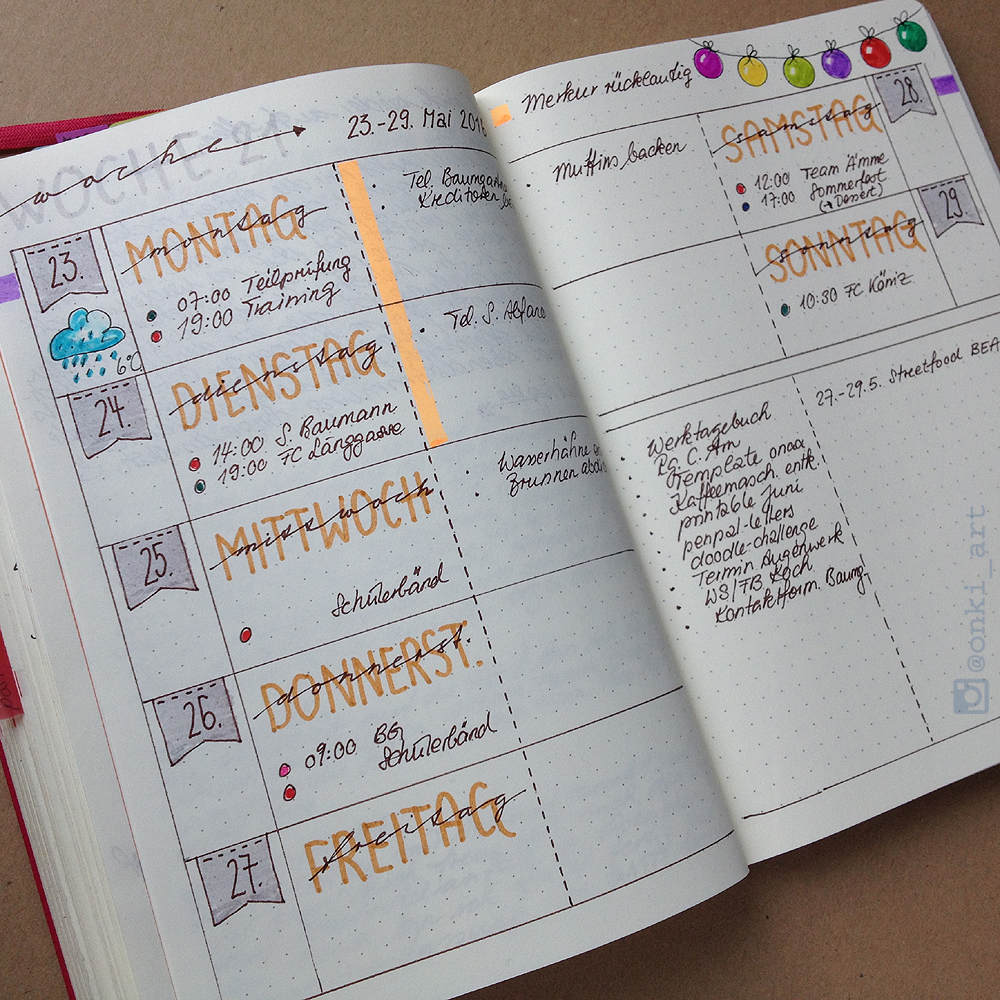 WOCHE 21
woche
23.-29. Mai 201
23.
MONTAG
montag
07:00 Teilprüfung
19:00 Training
6°C
Tel. Baumgar
Kreditoren
24.
DIENSTAG
dienstag
14:00 S. Baumann
19:00 FC Länggasse
Tel. S. Alfano
25.
MITTWOCH
mittwoch
Schülerbänd
Wasserhähne
Brunnen
26.
DONNERST.
donnerst.
09:00 BG
Schülerbänd
27.
FREITAG
freitag
Merkur rückläufig
Muffins backen
28.
SAMSTAG
samstag
12:00 Team Ämme
17:00 Sommerfest
(→ Dessert)
29.
SONNTAG
sonntag
10:30 FC Köniz
Werktagebuch
Pq C. Am
Template onaa
Kaffeemasch. entk.
printable Juni
penpal-letters
doodle-challenge
Termin Augenwerk
WS/FB Koch
Kontaktform. Baumg.
27.-29.5. Streetfood BEA
@onki_art